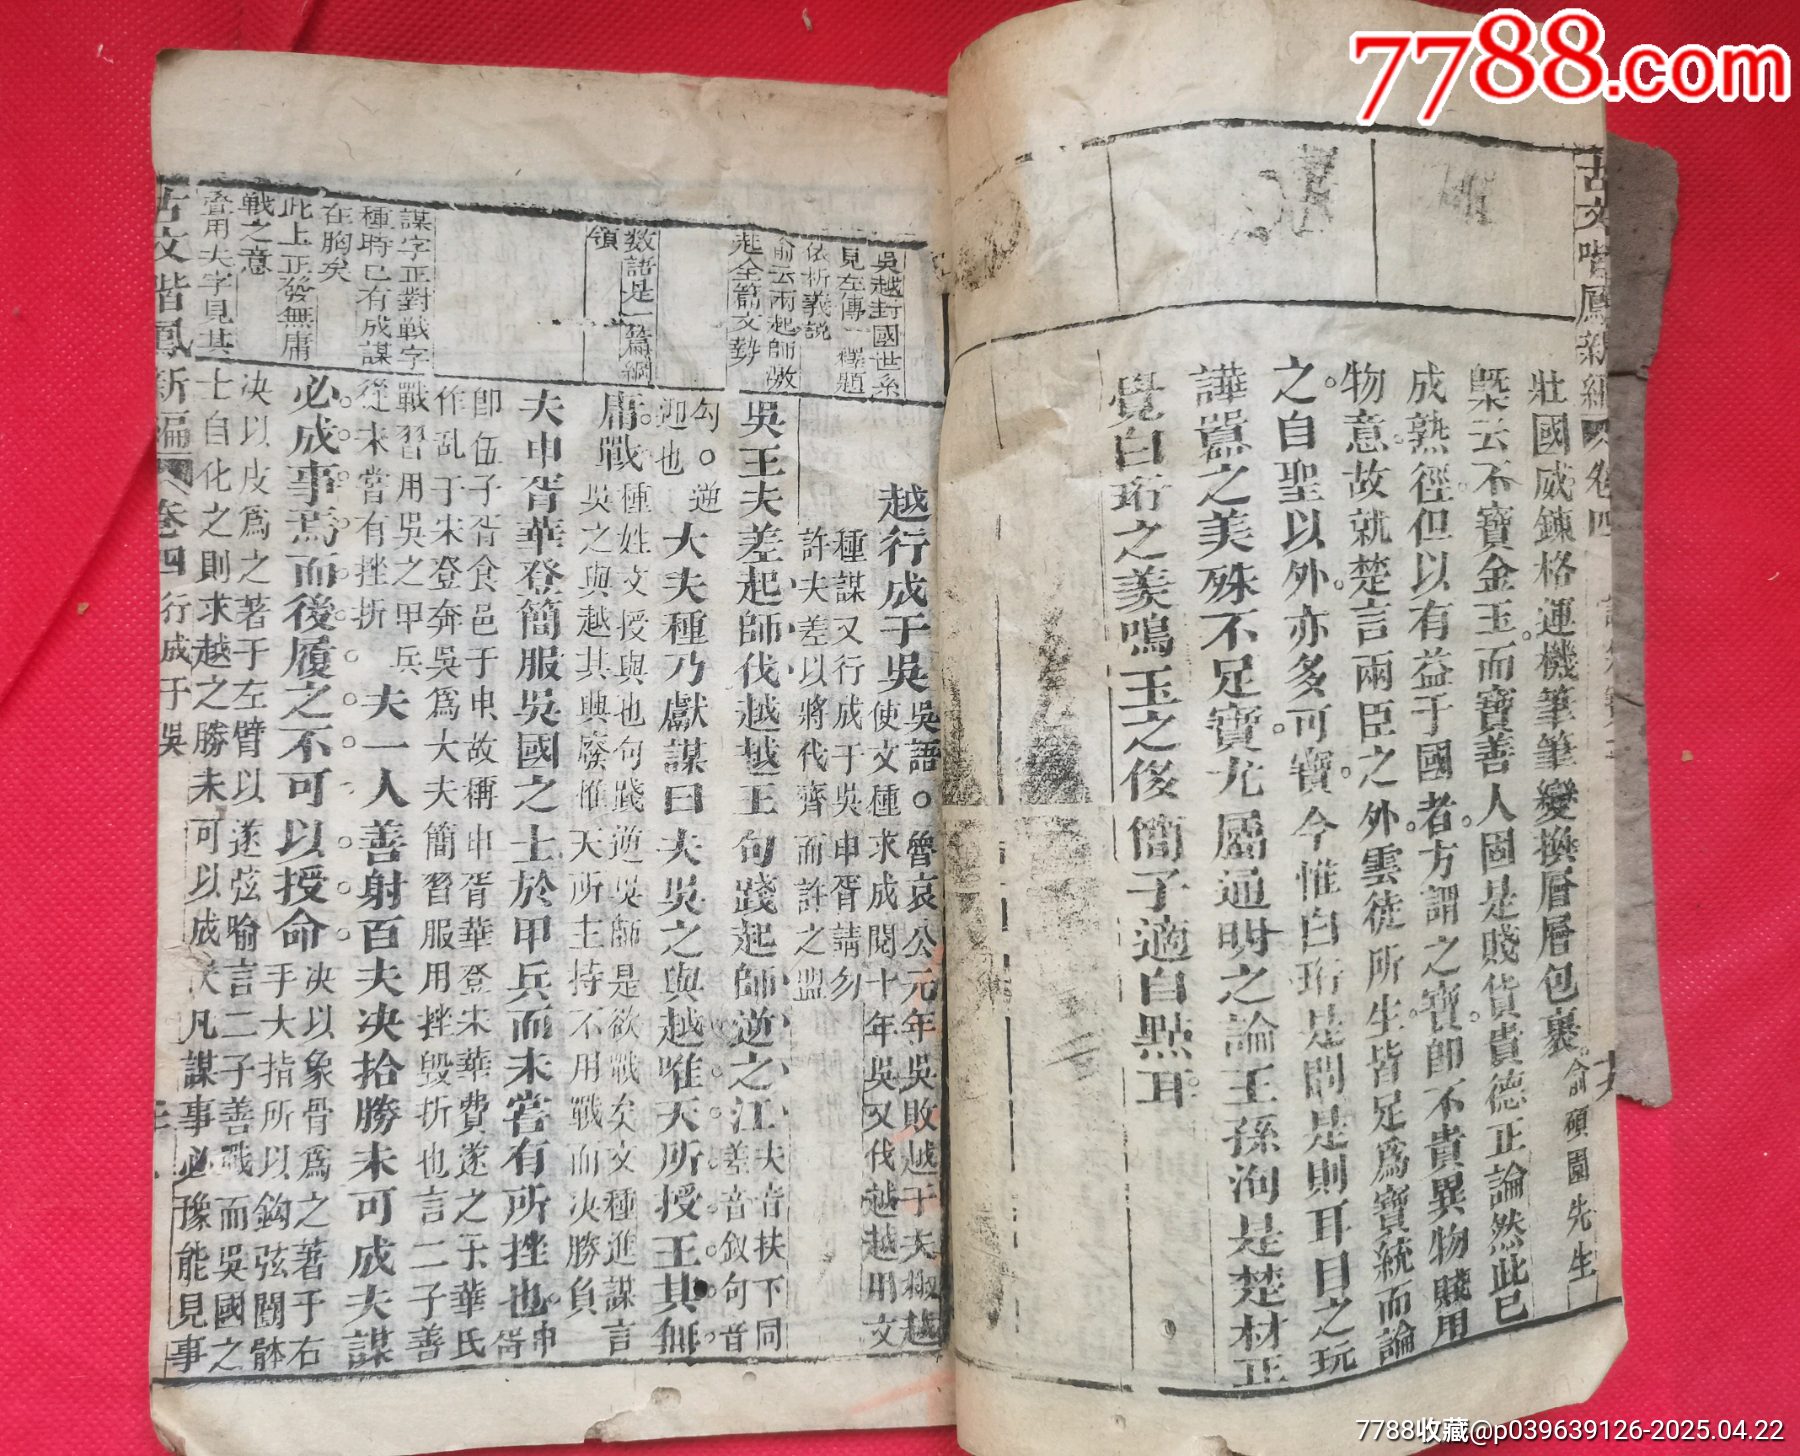 7788.com
古文階鳳新編 卷四
壯國威鍊格運機筆筆變換層層包裹 俞碩園先生
槩云不寶金玉而寶善人固是賤貨貴德正論然此已
成熟徑但以有益于國者方謂之寶即不貴異物賤用
物意故就楚言兩臣之外雲徒所生皆足為寶統而論
之自聖以外亦多可寶今惟白珩是問是則耳目之玩
譁嚚之美殊不足寶尤屬通明之論王孫洵是楚材正
覺白珩之美鳴玉之俊簡子適自點耳
吳越封國世系
見左傳一釋題
依析義說
俞云兩起師激
起全篇文勢
数語是一篇綱
領
謀字正對戦字
種時已有成謀
在胸矣
此上正發無庸
戦之意
叠用夫字見其
越行成于吳 吳語。魯哀公元年吳敗越于夫椒越
使文種求成閱十年吳又伐越越用文
種謀又行成于吳申胥請勿
許夫差以將伐齊而許之盟
吳王夫差起師伐越越王句踐起師逆之江 夫音扶下同
差音釵句音
勾。逆
迎也 大夫種乃獻謀曰夫吳之與越唯天所授王其無
庸戰 種姓文授與也句踐逆吳師是欲戰矣文種進謀言
吳之與越其興廢惟天所主持不用戰而決勝負
夫申胥華登簡服吳國之士於甲兵而未嘗有所挫也 申胥
即伍子胥食邑于申故稱申胥華登宋華費遂之子華氏
作乱于宋登奔吳為大夫簡習服用挫毀折也言二子善
戰習用吳之甲兵
從未嘗有挫折 夫一人善射百夫决拾勝未可成夫謀
必成事焉而後履之不可以授命 决以象骨為之著于右
手大指所以鈎弦闓體
决以皮為之著于左臂以遂弦喻言二子善戰而吳國之
士自化之則求越之勝未可以成 夫凡謀事必豫能見事
古文階鳳新編 卷四 行成于吳
7788收藏@p039639126-2025.04.22